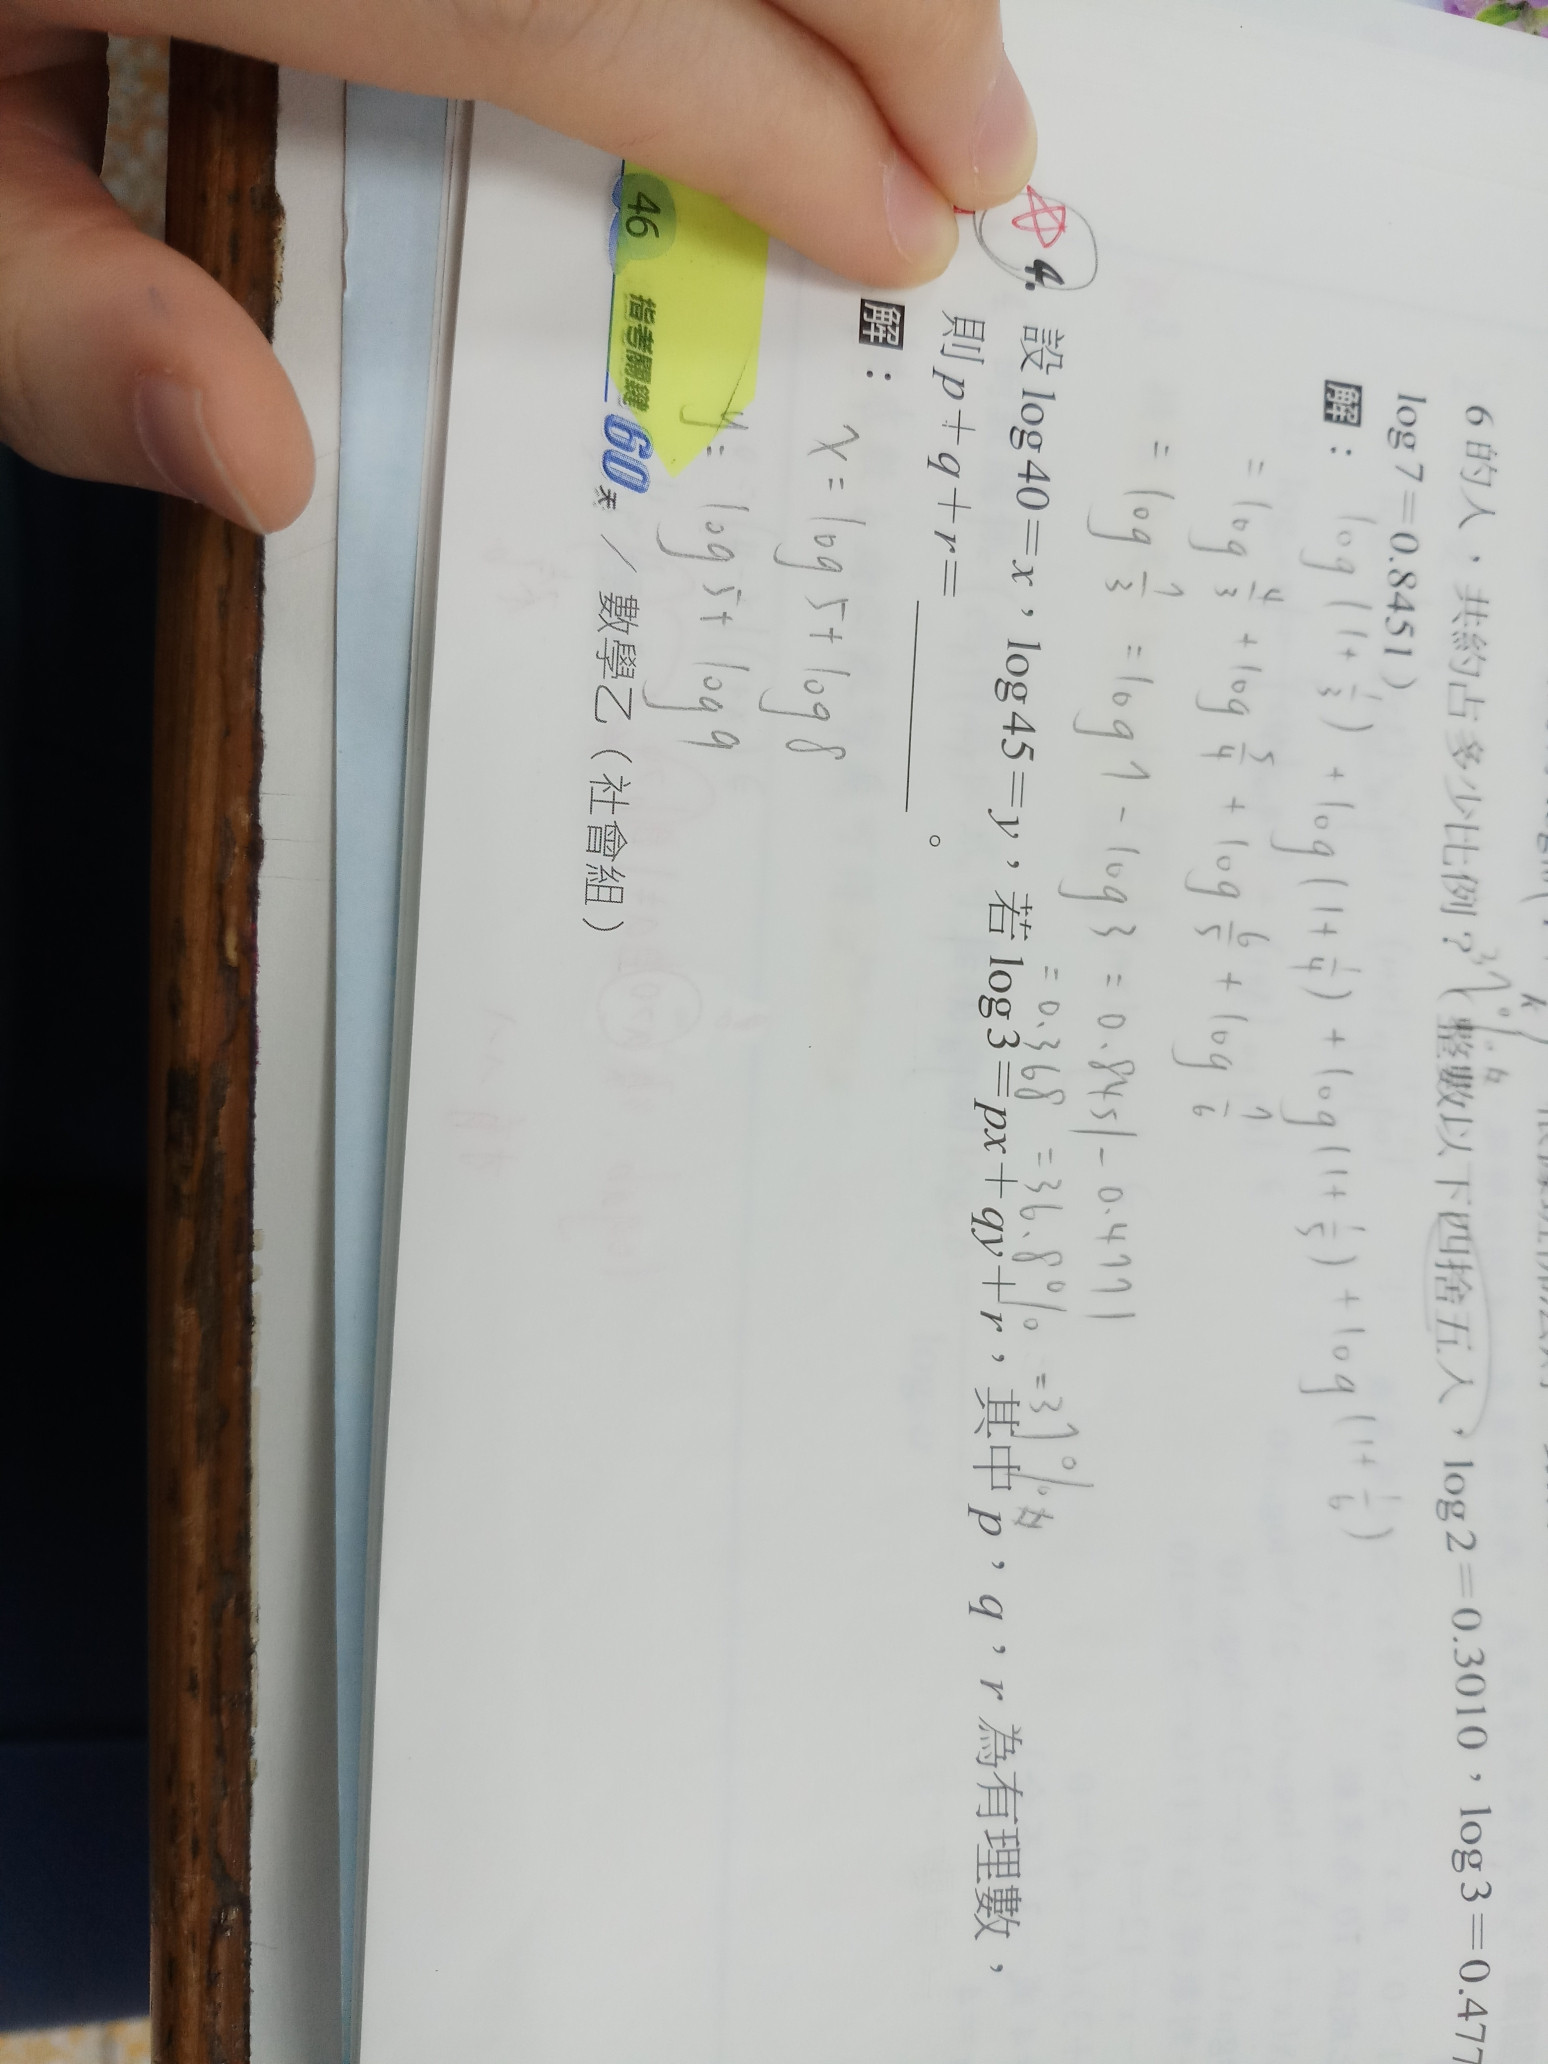 6 的人，共約占多少比例？(整數以下四捨五入，log2＝0.3010，log3＝0.477
37%.#
log7＝0.8451)
解：
log(1+1/3) + log(1+1/4) + log(1+1/5) + log(1+1/6)
= log 4/3 + log 5/4 + log 6/5 + log 7/6
= log 7/3 = log 7 - log 3 = 0.8451 - 0.4771
= 0.368 = 36.8% = 37%.#
4. 設 log40＝x，log45＝y，若 log3＝px＋qy＋r，其中 p，q，r 為有理數，
則 p＋q＋r＝________。
解：
x = log 5 + log 8
y = log 5 + log 9
46 指考關鍵60天 / 數學乙（社會組）